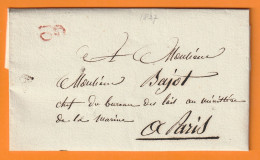 1837
A Monsieur
Monsieur Bajot
chef du bureau des lois au ministère
de la marine
A Paris